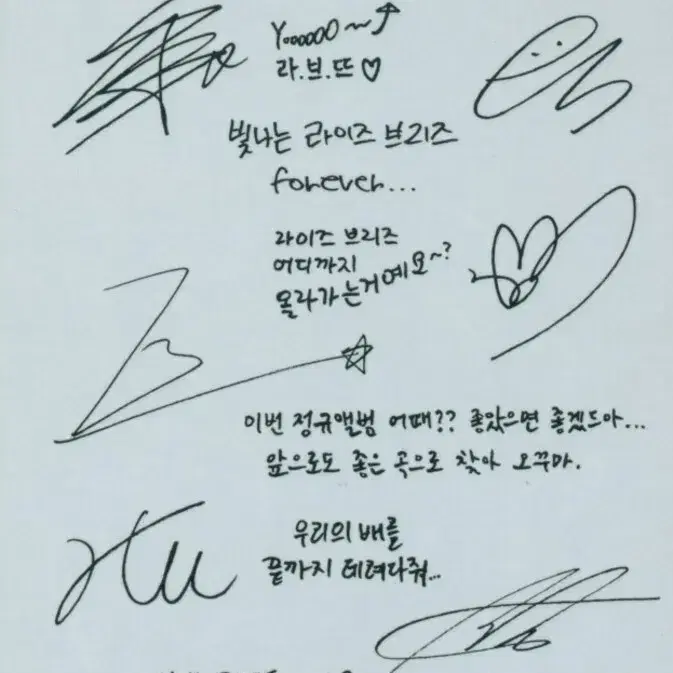 Yoooooo~
라.브.뜨♡
빛나는 라이즈 브리즈
forever...
라이즈 브리즈
어디까지
올라가는거예요~?
이번 정규앨범 어때?? 좋았으면 좋겠드아...
앞으로도 좋은 곡으로 찾아 오꾸마.
우리의 배를
끝까지 테려다줘...